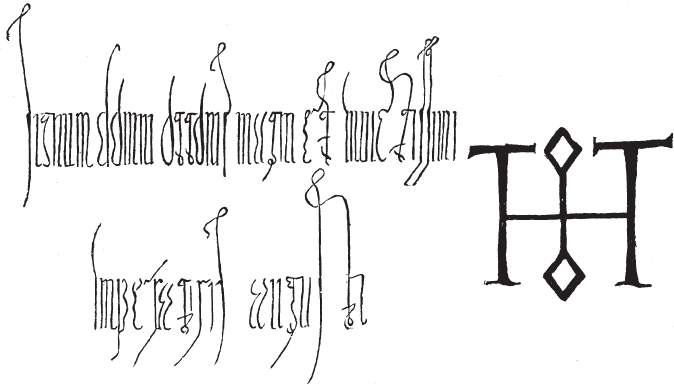 Signum domni ottonis magni et invictissimi
Imperatoris augusti